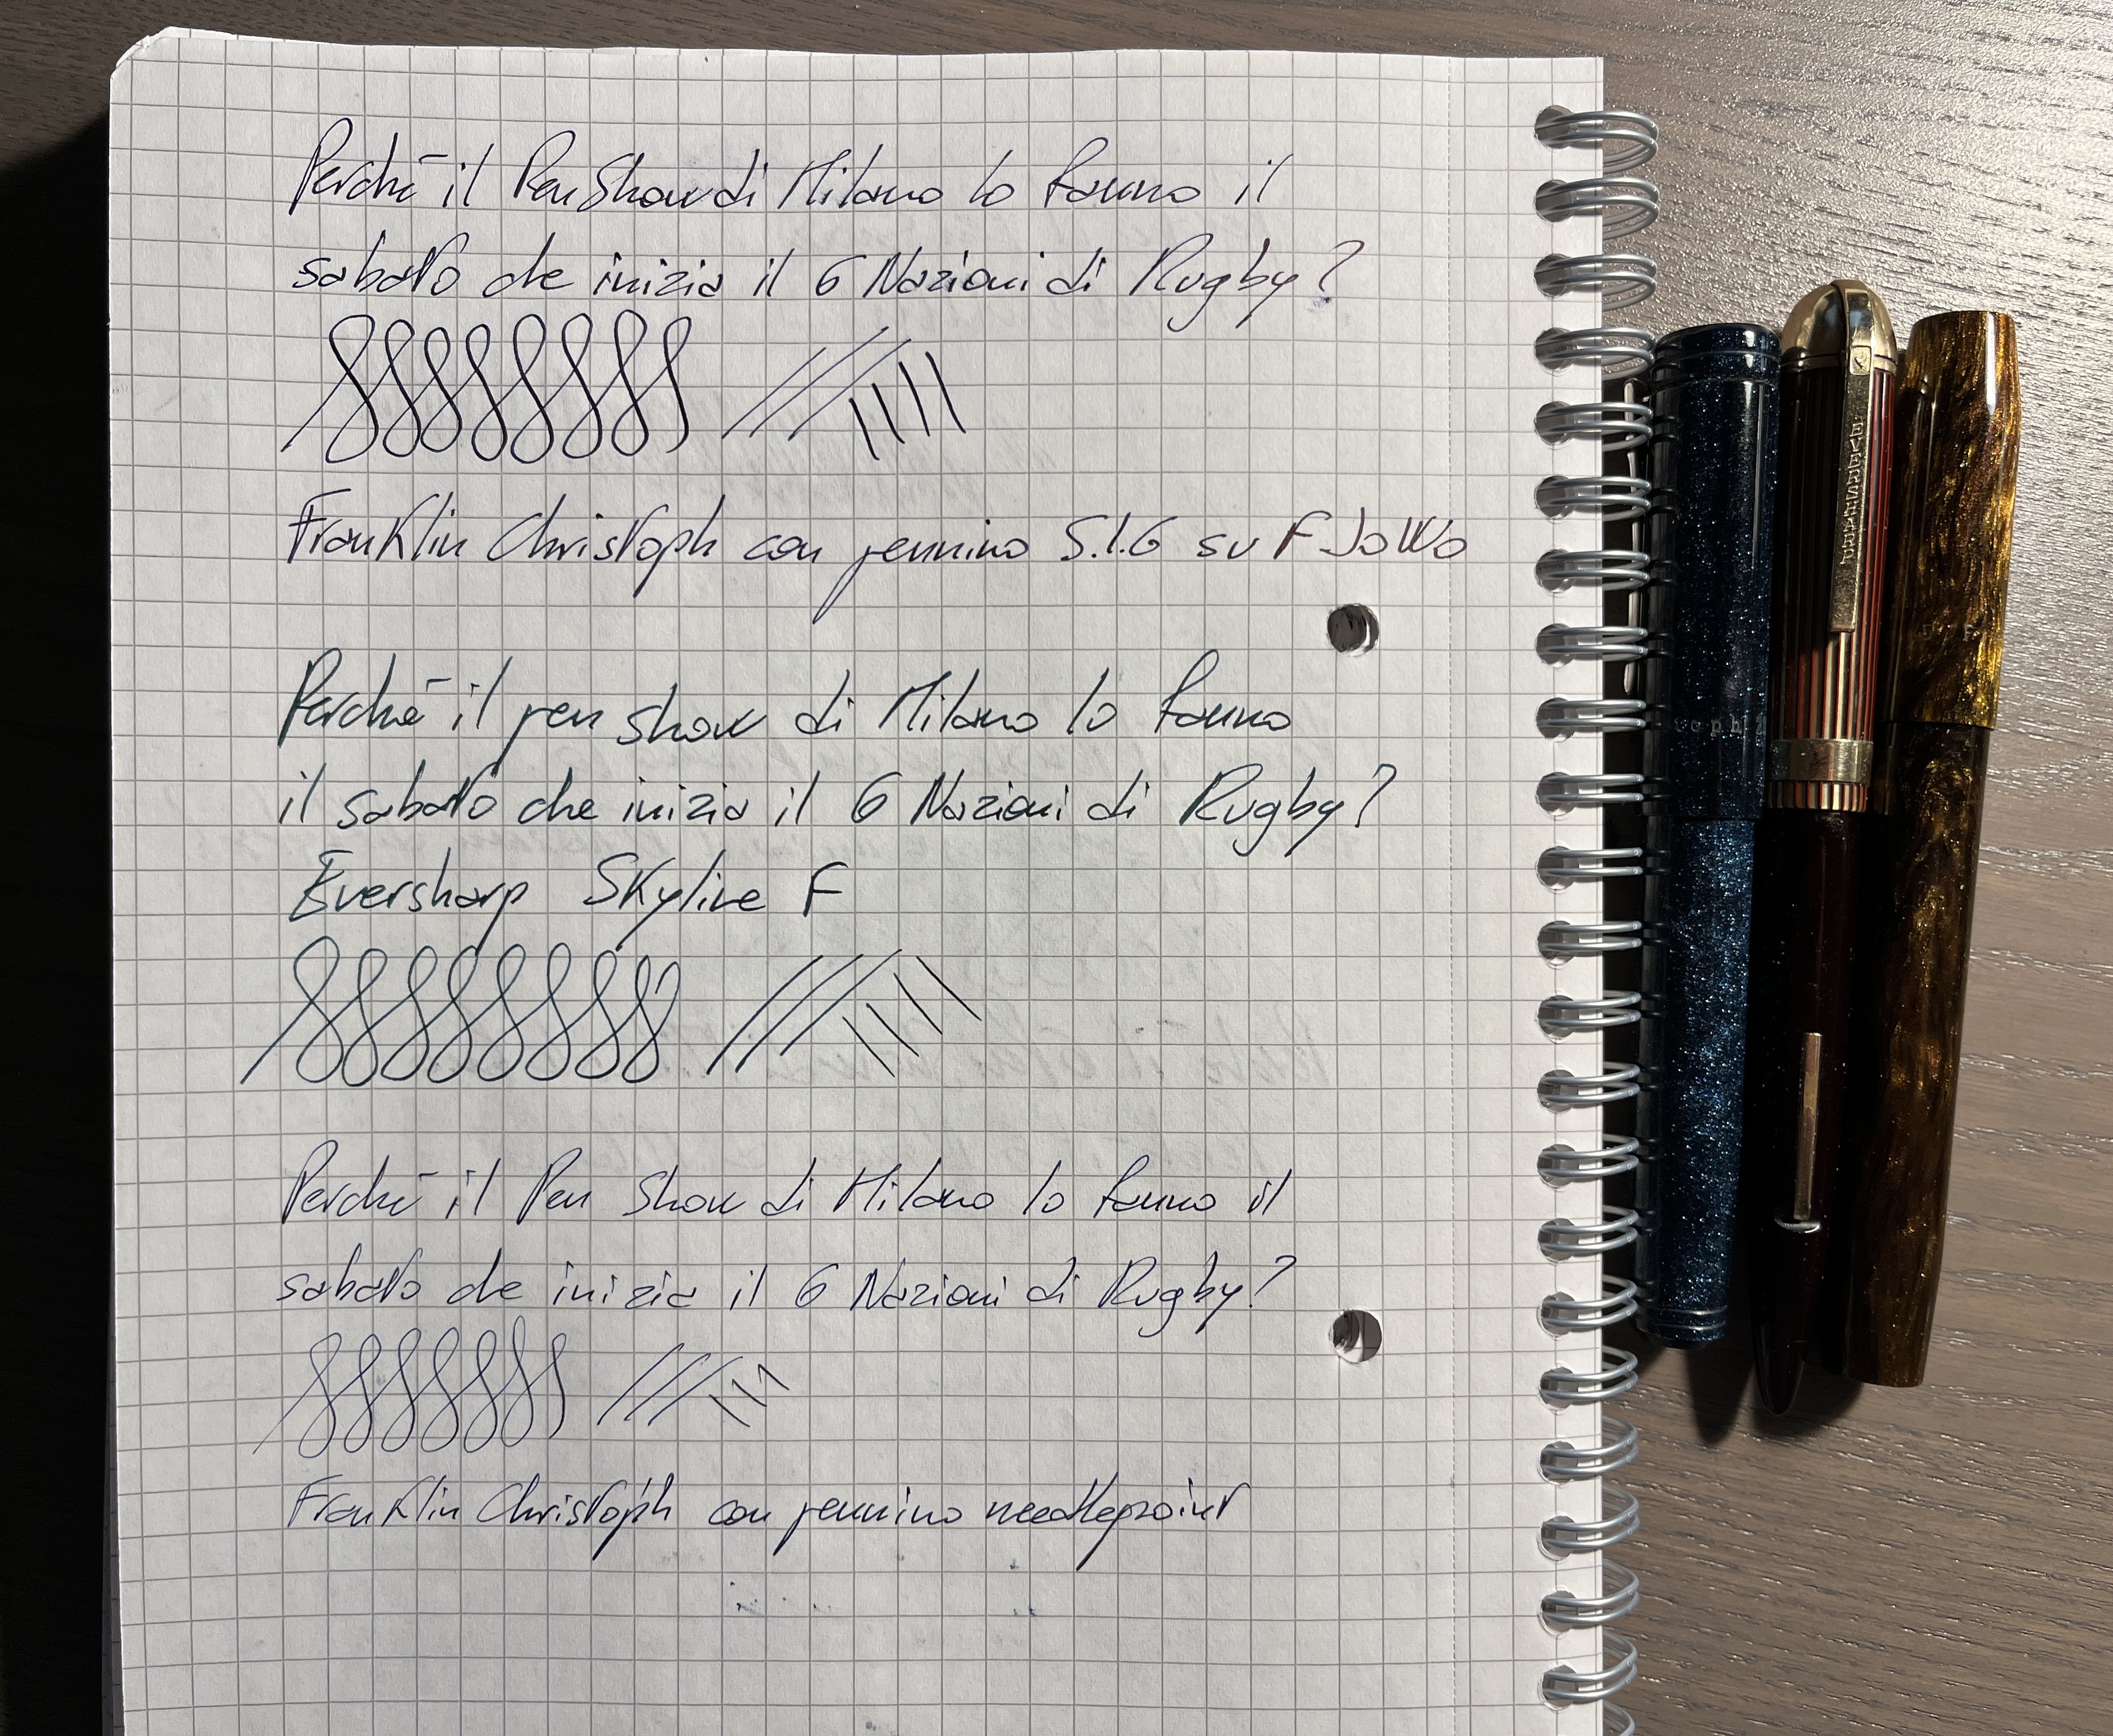 Perché il Pen Show di Milano lo fanno il
sabato che inizia il 6 Nazioni di Rugby?
Franklin Christoph con pennino S.I.G su F JoWo
Perché il pen show di Milano lo fanno
il sabato che inizia il 6 Nazioni di Rugby?
Eversharp Skyline F
Perché il Pen Show di Milano lo fanno il
sabato che inizia il 6 Nazioni di Rugby?
Franklin Christoph con pennino needlepoint
EVERSHARP